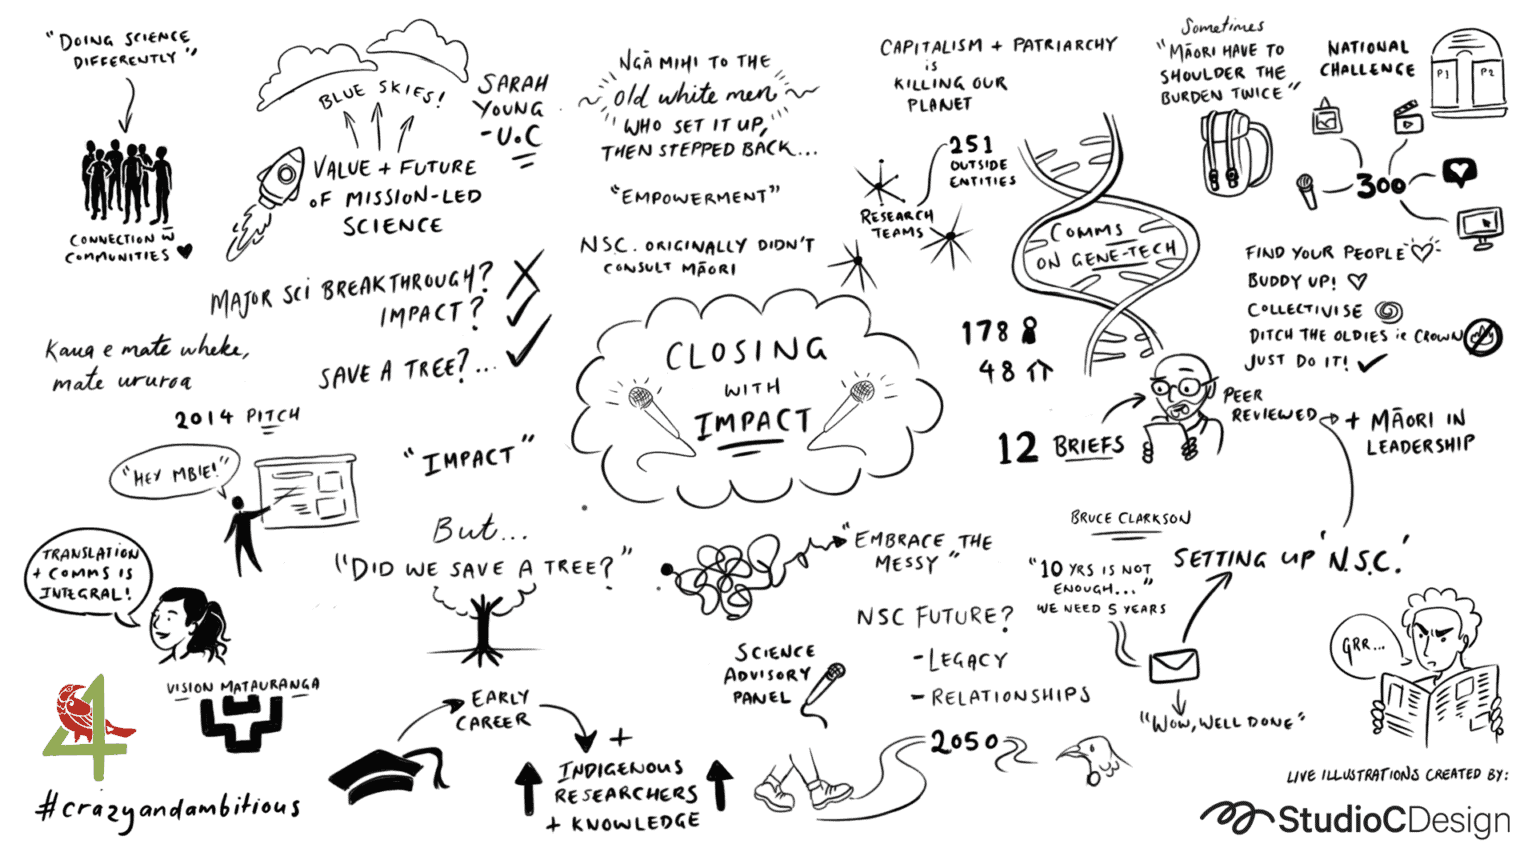 "DOING SCIENCE
DIFFERENTLY"
CONNECTION W
COMMUNITIES
BLUE SKIES!
VALUE + FUTURE
OF MISSION-LED
SCIENCE
SARAH
YOUNG
-U.C
MAJOR SCI BREAKTHROUGH?
IMPACT?
SAVE A TREE?...
Kaua e mate wheke,
mate ururoa
2014 PITCH
"HEY MBIE!"
"IMPACT"
TRANSLATION
+ COMMS IS
INTEGRAL!
VISION MATAURANGA
4
#crazyandambitious
But...
"DID WE SAVE A TREE?"
EARLY
CAREER
+
INDIGENOUS
RESEARCHERS
+ KNOWLEDGE
NGĀ MIHI TO THE
old white men
WHO SET IT UP,
THEN STEPPED BACK...
"EMPOWERMENT"
N.S.C. ORIGINALLY DIDN'T
CONSULT MĀORI
CLOSING
WITH
IMPACT
"EMBRACE THE
MESSY"
NSC FUTURE?
-LEGACY
-RELATIONSHIPS
SCIENCE
ADVISORY
PANEL
2050
CAPITALISM + PATRIARCHY
is
KILLING OUR
PLANET
251
OUTSIDE
ENTITIES
RESEARCH
TEAMS
COMMS
ON GENE-TECH
178
48
12 BRIEFS
PEER
REVIEWED
+ MĀORI IN
LEADERSHIP
Sometimes
"MĀORI HAVE TO
SHOULDER THE
BURDEN TWICE"
NATIONAL
CHALLENGE
P1
P2
300
FIND YOUR PEOPLE
BUDDY UP!
COLLECTIVISE
DITCH THE OLDIES ie CROWN
JUST DO IT!
BRUCE CLARKSON
"10 YRS IS NOT
ENOUGH..."
WE NEED 5 YEARS
SETTING UP 'N.S.C.'
"WOW, WELL DONE"
GRR...
LIVE ILLUSTRATIONS CREATED BY:
StudioCDesign